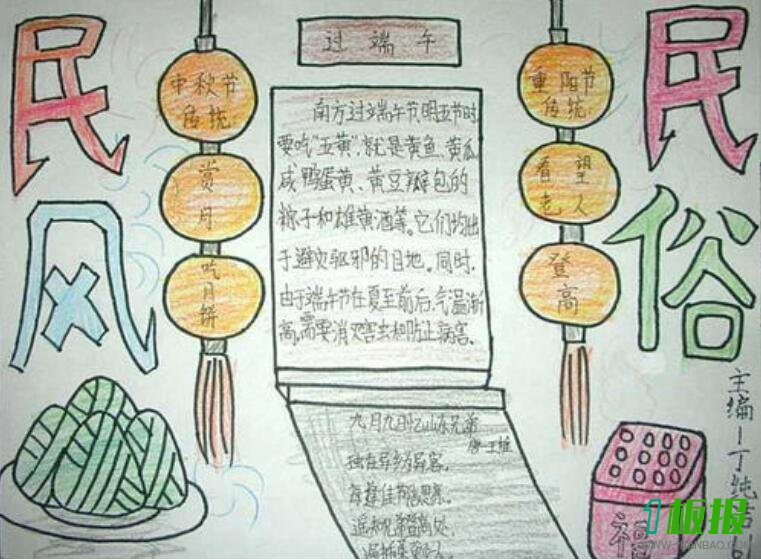 民风
民俗
过端午
中秋节
传统:
赏月
吃月饼
重阳节
传统:
看望
老人
登高
南方过端午节明五节时
要吃“五黄”,就是黄鱼、黄瓜
咸鸭蛋黄、黄豆瓣包的
粽子和雄黄酒等。它们均出
于避灾驱邪的目地。同时,
由于端午节在夏至前后,气温渐
高,需要消灭害虫和防止病害、
九月九日忆山东兄弟
唐 王维
独在异乡为异客,
每逢佳节倍思亲。
遥知兄弟登高处,
主编
丁纯
福
1板报
WWW.1BANBAO.COM